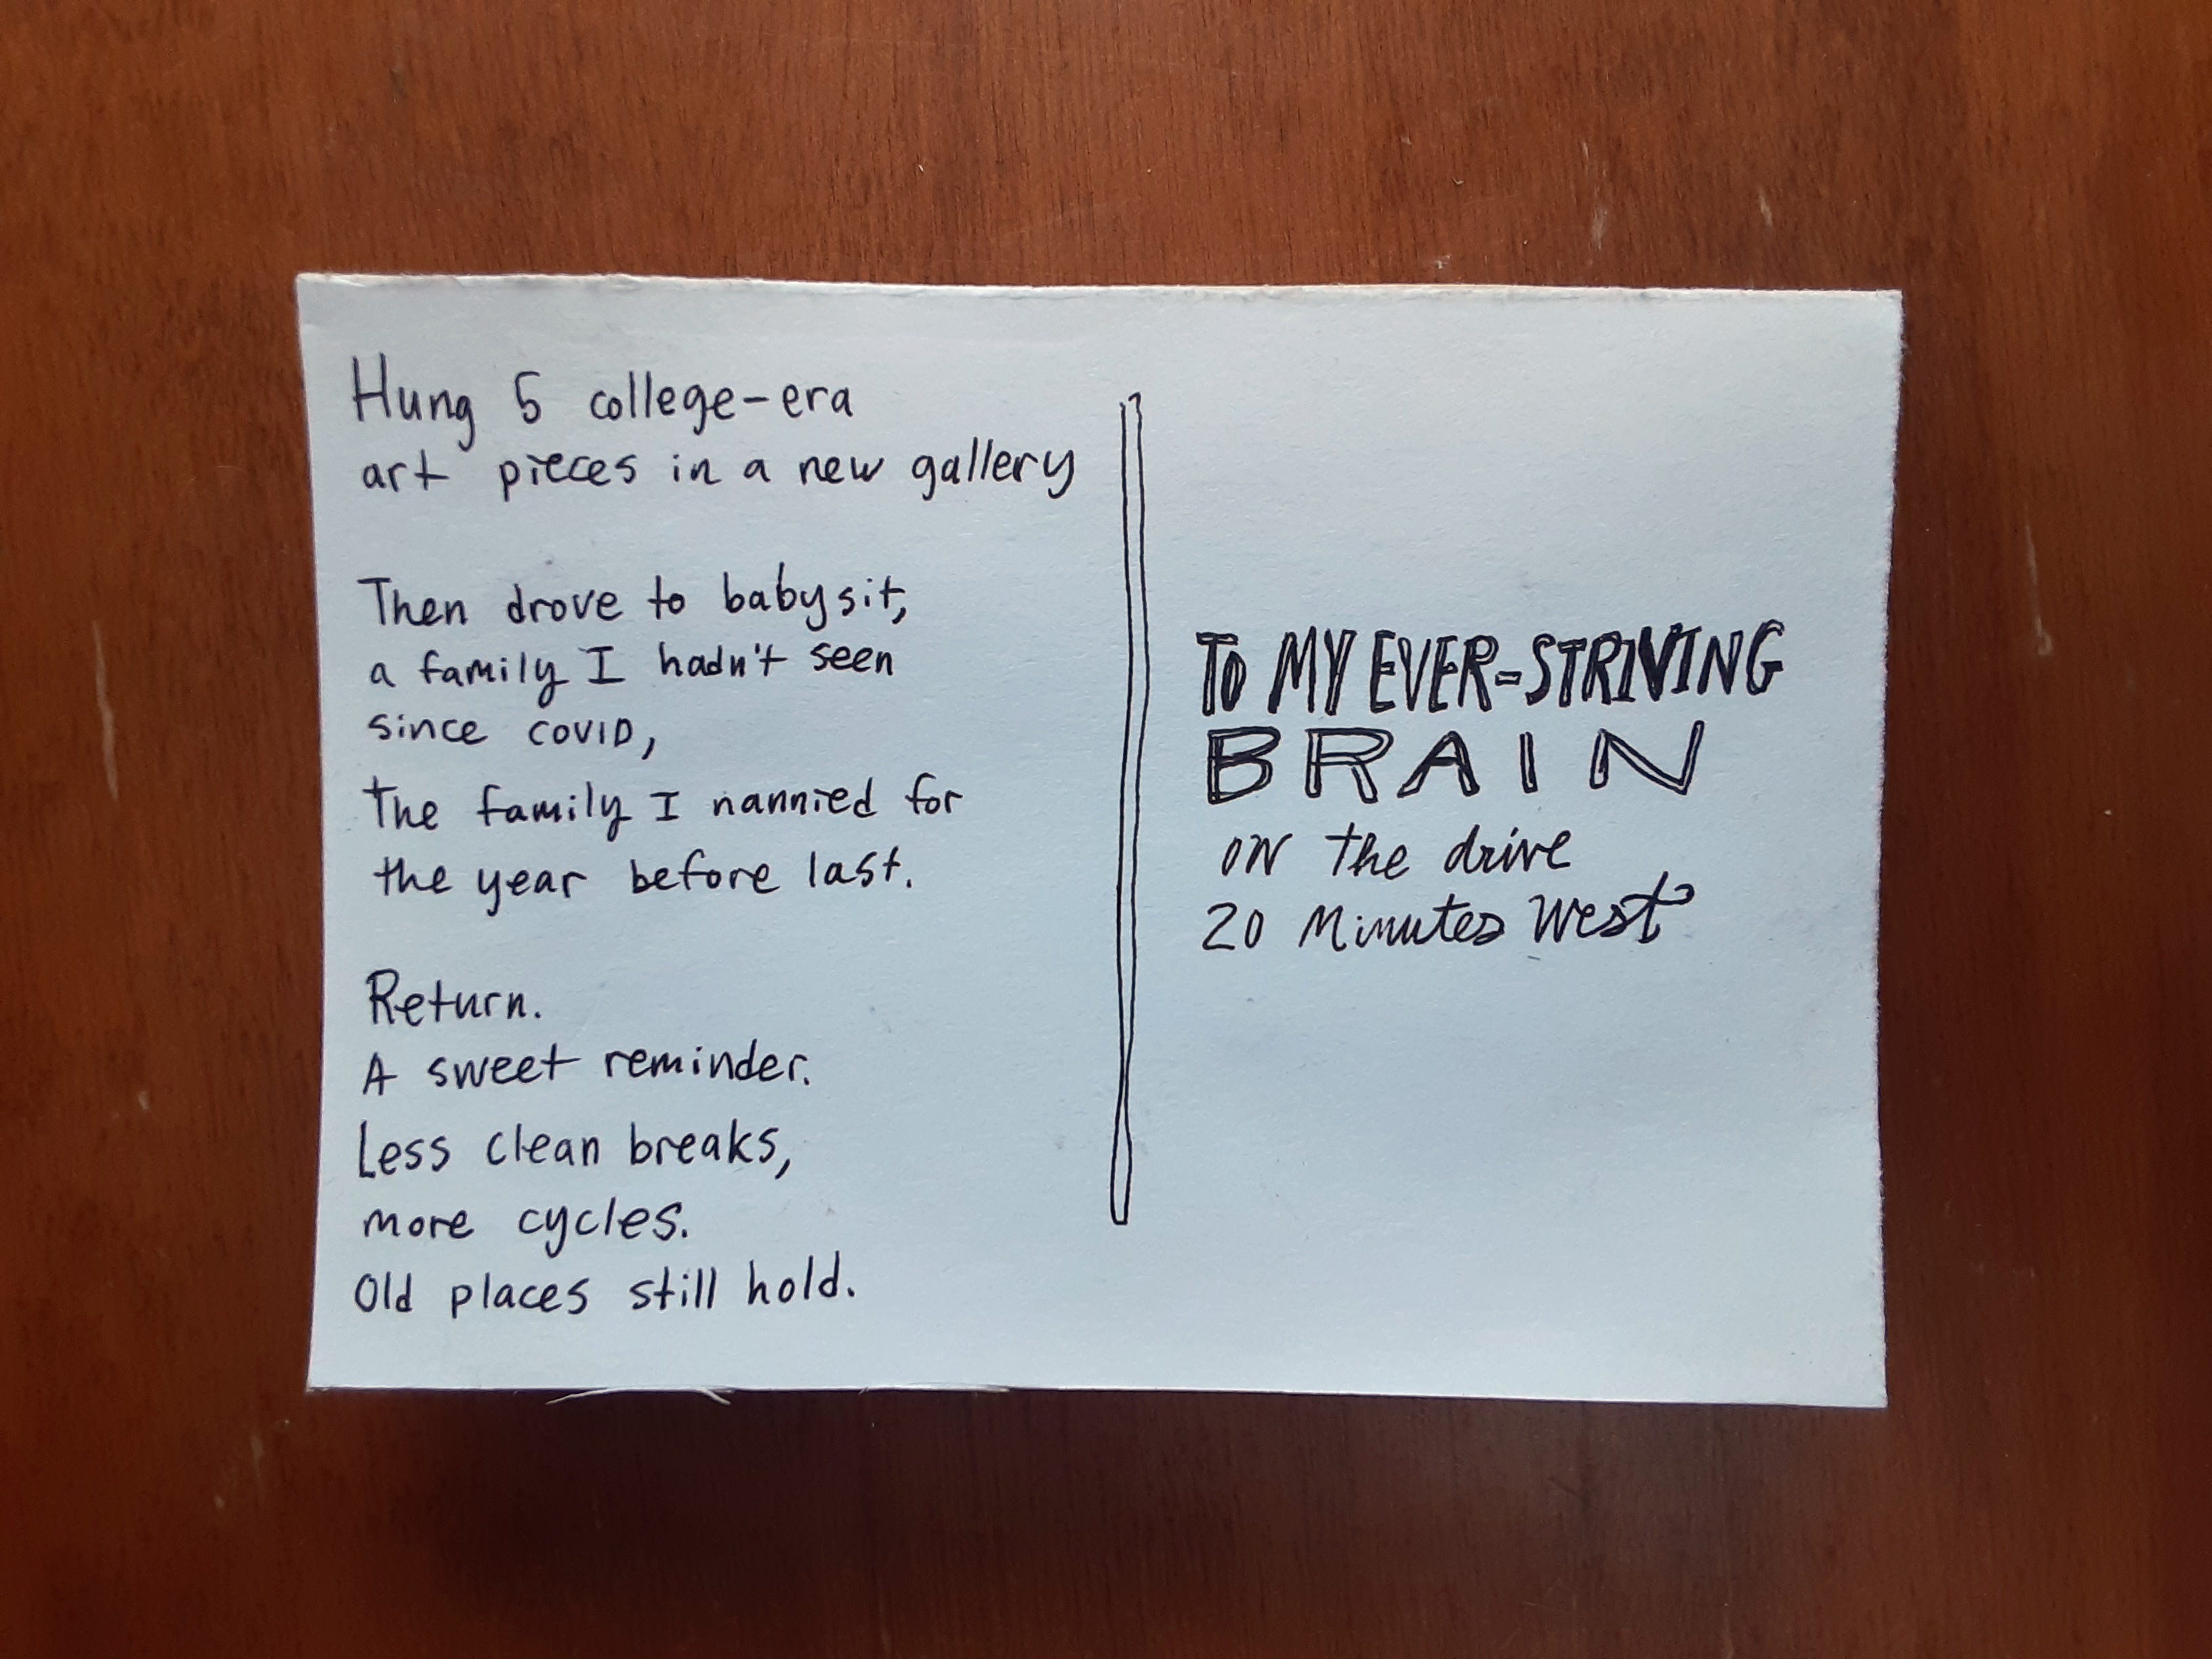 Hung 5 college-era
art pieces in a new gallery
Then drove to babysit,
a family I hadn't seen
since COVID,
the family I nannied for
the year before last.
Return.
A sweet reminder.
Less clean breaks,
more cycles.
Old places still hold.
TO MY EVER-STRIVING
BRAIN
on the drive
20 Minutes West